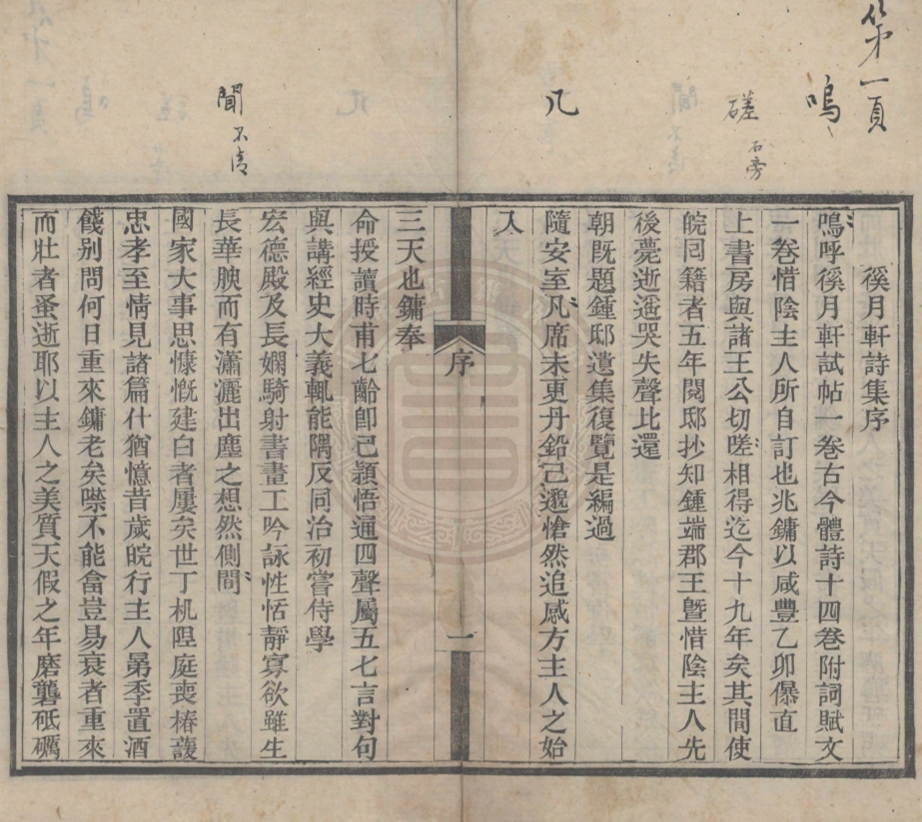 第一頁
嗚
磋
石旁
凡
聞
不清
徯月軒詩集序
嗚呼徯月軒試帖一卷古今體詩十四卷附詞賦文
一卷惜陰主人所自訂也兆鏞以咸豐乙卯儤直
上書房與諸王公切嗟相得迄今十九年矣其間使
皖回籍者五年閱邸抄知鍾端郡王曁惜陰主人先
後薨逝遥哭失聲比還
朝旣題鍾邸遺集復覽是編過
隨安室凡席未更丹鉛已邈愴然追感方主人之始
入
序
一
三天也鏞奉
命授讀時甫七齡卽已穎悟通四聲屬五七言對句
與講經史大義輒能隅反同治初嘗侍學
宏德殿及長嫻騎射書畫工吟詠性恬靜寡欲雖生
長華腴而有瀟灑出塵之想然側間
國家大事思慷慨建白者屢矣世丁杌隉庭喪椿護
忠孝至情見諸篇什猶憶昔歲皖行主人昴季置酒
餞別問何日重來鏞老矣噤不能畣豈易衰者重來
而壯者蚤逝耶以主人之美質天假之年磨礱砥礪